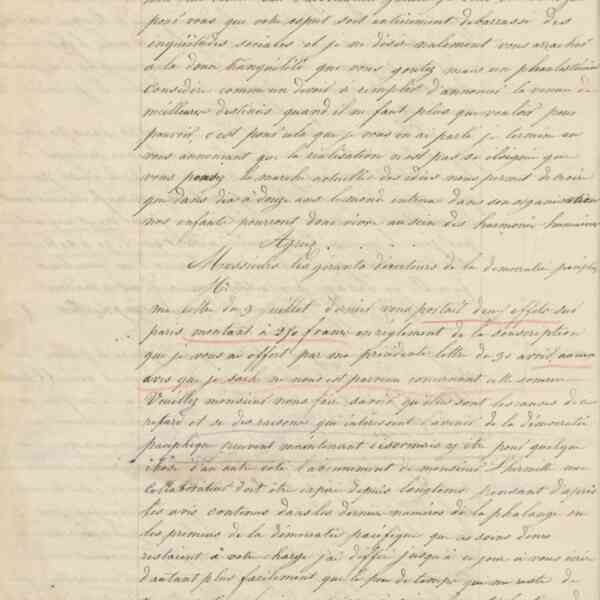 posé vous que votre esprit soit entièrement debarrassé des
inquiétudes sociales et je ne désire nulement vous arracher
a la douce tranquilité que vous goutez mais un phalanstérien
considère comme un devoir a remplir d'annoncé la venue de
meilleurs destinés quand il ne faut plus que vouloir pour
pouvoir, c'est pour cela que je vous en ai parlé je termine en
vous annoncant que la réalisation n'est pas si éloignée que
vous pensez la marche actuelle des idées nous permet de croire
que dans dix a douze ans le monde entrera dans son organisation
nos enfants pourront donc vivre au sein des harmonies humaines
Agréez . . . .
Messieurs les gérants directeurs de la démocratie pacifique
Mr
ma lettre du 9 juillet dernier vous portait deux effets sur
paris montant à 250 francs en reglement de la souscription
que je vous ai offert par ma précédente lettre du 30 avril aucun
avis que je sache ne nous est parvenu concernant cette somme
Veuillez monsieur nous faire savoir qu'elles sont les causes de ce
retard et si des raisons qui intéressent l'avenir de la démocratie
pacifique peuvent maintenant et désormais y être pour quelque
chose d'un autre coté l'abonnement de monsieur l'hermitte mon
collaborateur doit être expiré depuis longtems pensant d'après
les avis contenus dans les derniers numeros de la phalange en
les premiers de la démocratie pacifique que ces soins divers
restaient à votre charge j'ai différé jusqu'à ce jour à vous écrire
d'autant plus facilement que le peu de temps qui me reste de